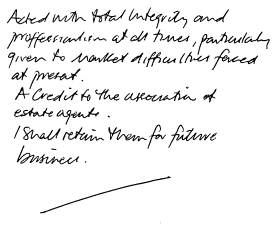 Acted with total Integrity and
proffessionalism at all times, particularly
given to market difficulties forced
at present.
A Credit to the association of
estate agents.
I shall retain them for future
business.